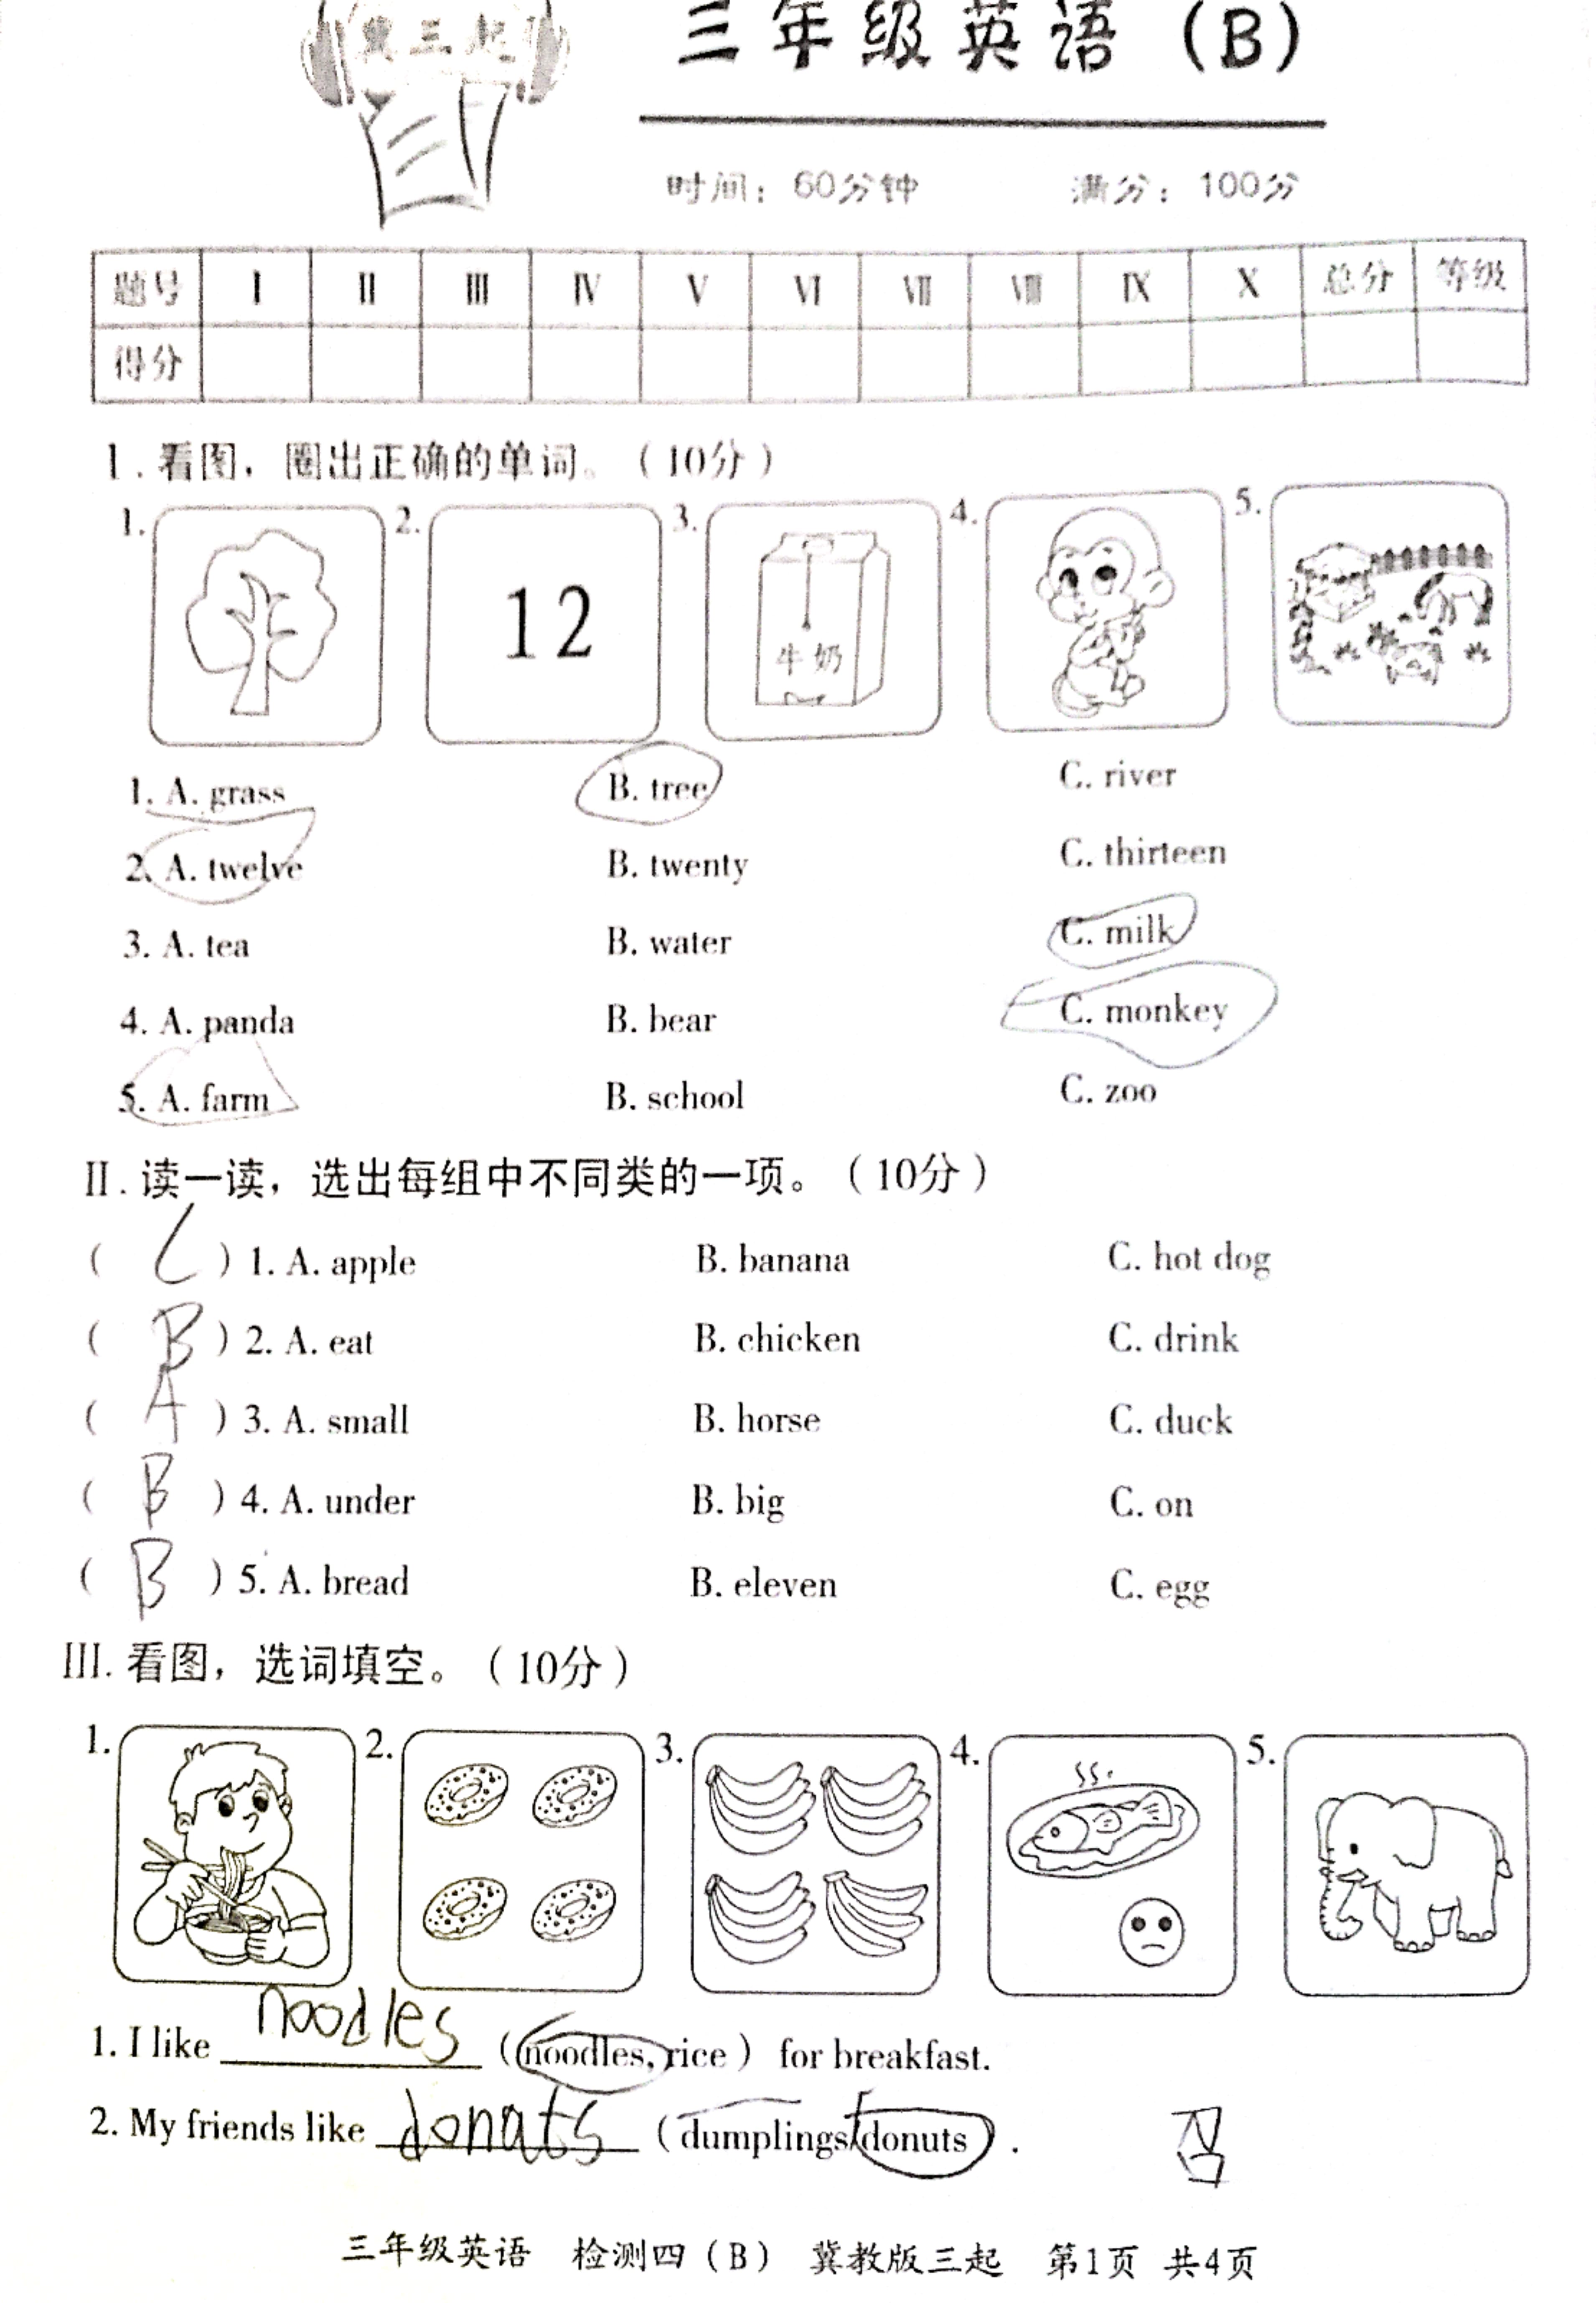 冀三起
三年级英语（B）
时间：60分钟 满分：100分
题号 I II III IV V VI VII VIII IX X 总分 等级
得分
I.看图，圈出正确的单词。（10分）
1. 2. 3. 4. 5.
12
牛奶
1. A. grass B. tree C. river
2. A. twelve B. twenty C. thirteen
3. A. tea B. water C. milk
4. A. panda B. bear C. monkey
5. A. farm B. school C. zoo
II.读一读，选出每组中不同类的一项。（10分）
( C ) 1. A. apple B. banana C. hot dog
( B ) 2. A. eat B. chicken C. drink
( A ) 3. A. small B. horse C. duck
( B ) 4. A. under B. big C. on
( B ) 5. A. bread B. eleven C. egg
III.看图，选词填空。（10分）
1. 2. 3. 4. 5.
1. I like noodles (noodles, rice) for breakfast.
2. My friends like donats (dumplings, donuts).
三年级英语 检测四（B） 冀教版三起 第1页 共4页